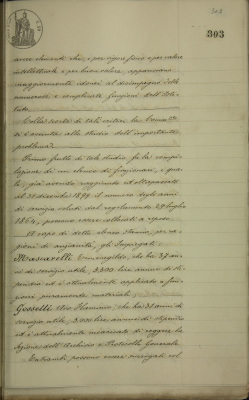 303
303
anco chiariti che, per vigore fisico e per valore
intellettuale e per buon volere, apparivano
maggiormente idonei al disimpegno delle
numerose e complicate funzioni dell'Isti-
tuto.
Colla scorta di tali criteri la Comm.ne
si è accinta allo studio dell'importante
problema.
Primo frutto di tale studio fu la compi-
lazione di un elenco di funzionari, i qua-
li, già avendo raggiunto od oltrepassato
al 31 dicembre 1899 il numero degli anni
di servizio voluti dal regolamento 29 luglio
1864, possono essere collocati a riposo.
A capo di detto elenco stanno, per ra-
gioni di anzianità, gli Impiegati:
Mascarelli Ermenegildo, che ha 37 an-
ni di servizio utile, 3,500 lire annue di sti-
pendio ed è attualmente applicato a fun-
zioni puramente materiali;
Gossetti Flaminio, che ha 35 anni di
servizio utile, 3,000 lire annue di stipendio
ed è attualmente incaricato di reggere la
Sezione dell'Archivio e Protocollo Generale.
Entrambi possono essere surrogati col